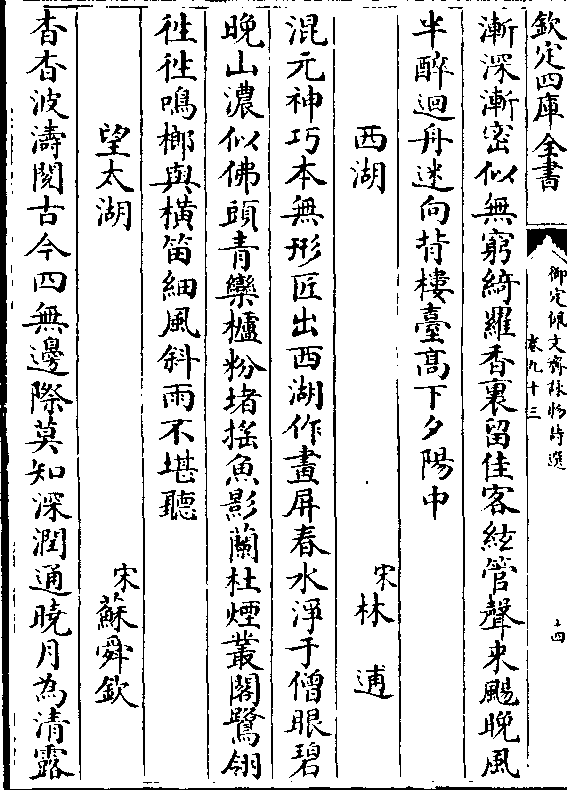 欽定四庫全書
御定佩文齋詠物詩選
卷九十三
十四
漸深漸密似無窮綺羅香裏留佳客絃管聲來颺晚風
半醉迴舟迷向背樓臺高下夕陽中
西湖
宋林逋
混元神巧本無形匠出西湖作畫屏春水淨于僧眼碧
晚山濃似佛頭青欒櫨粉堵搖魚影蘭杜煙叢閣鷺翎
往往鳴榔與橫笛細風斜雨不堪聽
望太湖
宋蘇舜欽
杳杳波濤閱古今四無邊際莫知深潤通曉月為清露